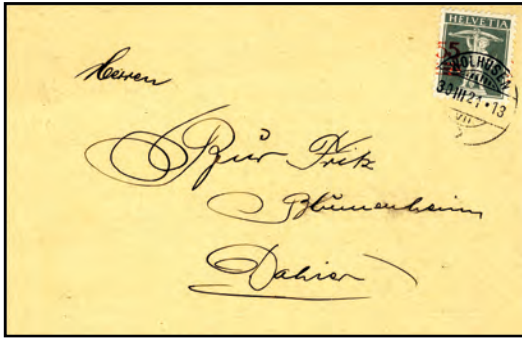 HELVETIA
5
WOLHUSEN
30 III 21 · 13
VII
Herren
Fritz
Blumenheim
Dahier